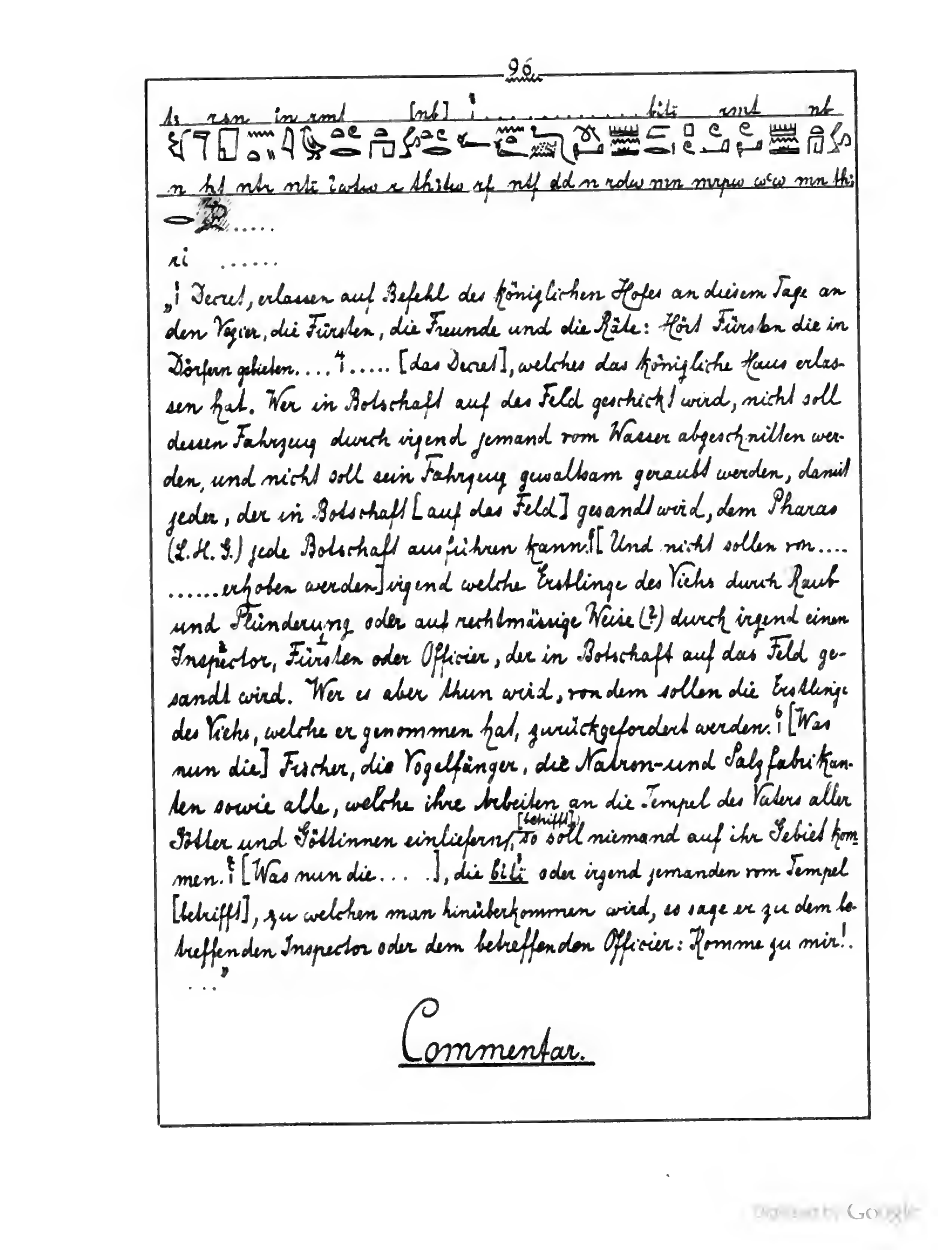 96
n ḥt ntr nti
ri ......
„1 Decret, erlassen auf Befehl des königlichen Hofes an diesem Tage an
den Vezier, die Fürsten, die Freunde und die Räte: Hört Fürsten die in
Dörfern gebieten....4..... [das Decret], welches das königliche Haus erlas-
sen hat. Wer in Botschaft auf das Feld geschickt wird, nicht soll
dessen Fahrzeug durch irgend jemand vom Wasser abgeschnitten wer-
den, und nicht soll sein Fahrzeug gewaltsam geraubt werden, damit
jeder, der in Botschaft [auf das Feld] gesandt wird, dem Pharao
(L. H. G.) jede Botschaft ausführen kann. [Und nicht sollen von....
......erhoben werden] irgend welche Erstlinge des Viehs durch Raub
und Plünderung oder auf rechtmässige Weise (?) durch irgend einen
Inspector, Fürsten oder Officier, der in Botschaft auf das Feld ge-
sandt wird. Wer es aber thun wird, von dem sollen die Erstlinge
des Viehs, welche er genommen hat, zurückgefordert werden. 6 [Was
nun die] Fischer, die Vogelfänger, die Natron- und Salzfabrikan-
ten sowie alle, welche ihre Arbeiten an die Tempel des Vaters aller
Götter und Göttinnen einliefern, [betrifft], so soll niemand auf ihr Gebiet kom-
men. [Was nun die.....], die biti oder irgend jemanden vom Tempel
[betrifft], zu welchen man hinüberkommen wird, so sage er zu dem be-
treffenden Inspector oder dem betreffenden Officier: Komme zu mir!.
..."
Commentar.
Digitized by Google